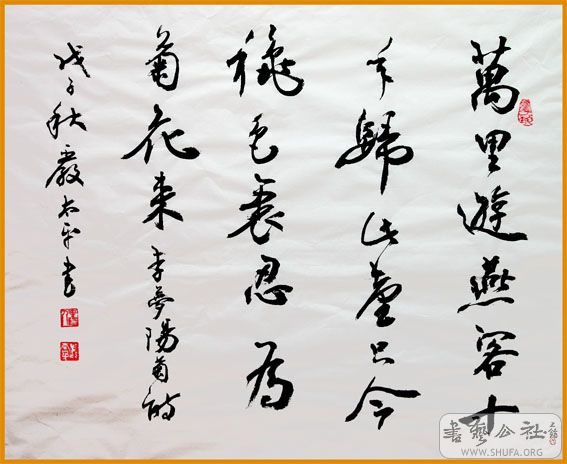 萬里遊燕客十
年歸此臺只今
穐色裏忍為
菊花来 李夢陽菊詩
戊子秋嚴太平書
書藝公社
WWW.SHUFA.ORG